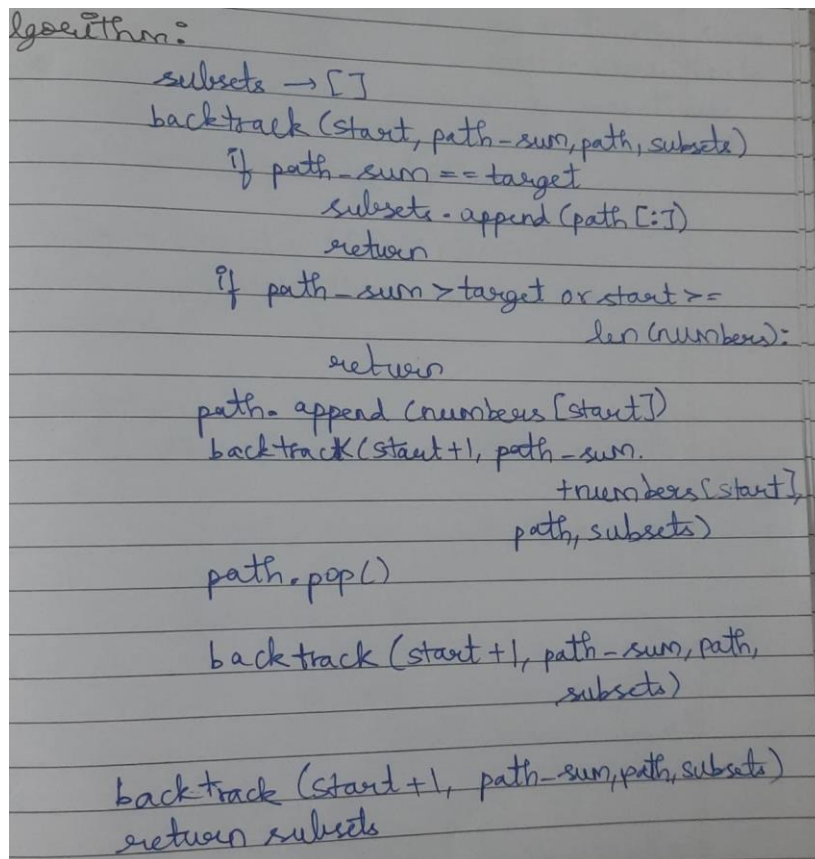 lgorithm:
subsets → []
backtrack (start, path-sum, path, subsets)
if path-sum == target
subsets.append (path [:])
return
if path-sum > target or start >=
len (numbers):
return
path.append (numbers [start])
backtrack (start+1, path-sum.
+numbers [start],
path, subsets)
path.pop()
backtrack (start +1, path-sum, path,
subsets)
backtrack (start +1, path-sum, path, subsets)
return subsets